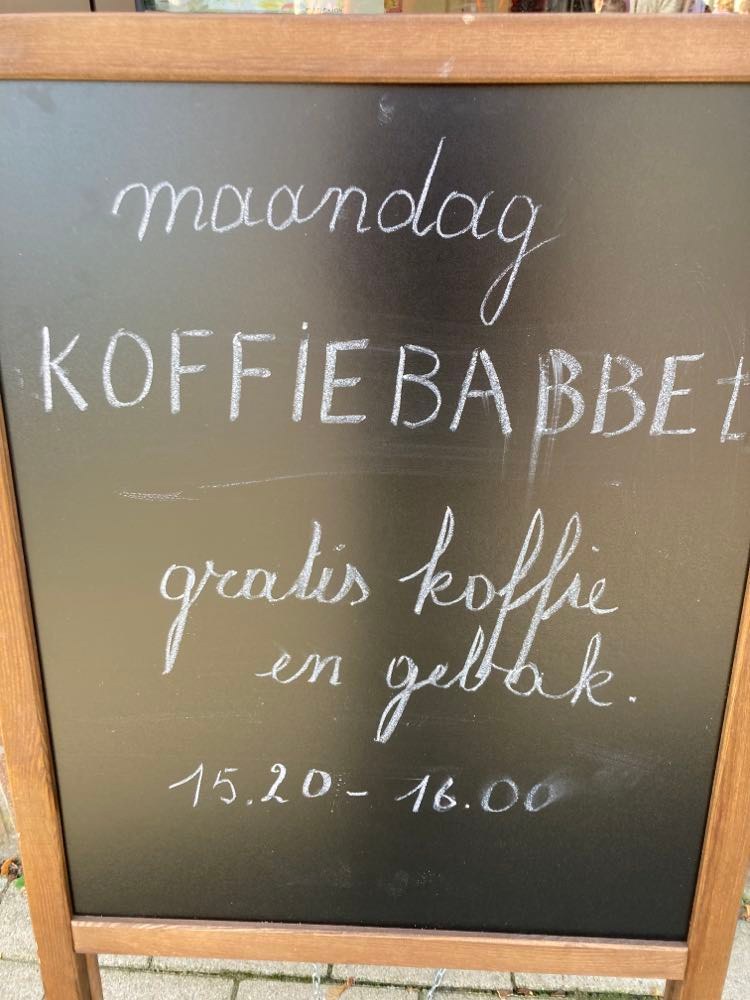 maandag
KOFFIEBABBEt
gratis koffie
en gebak.
15.20 - 16.00